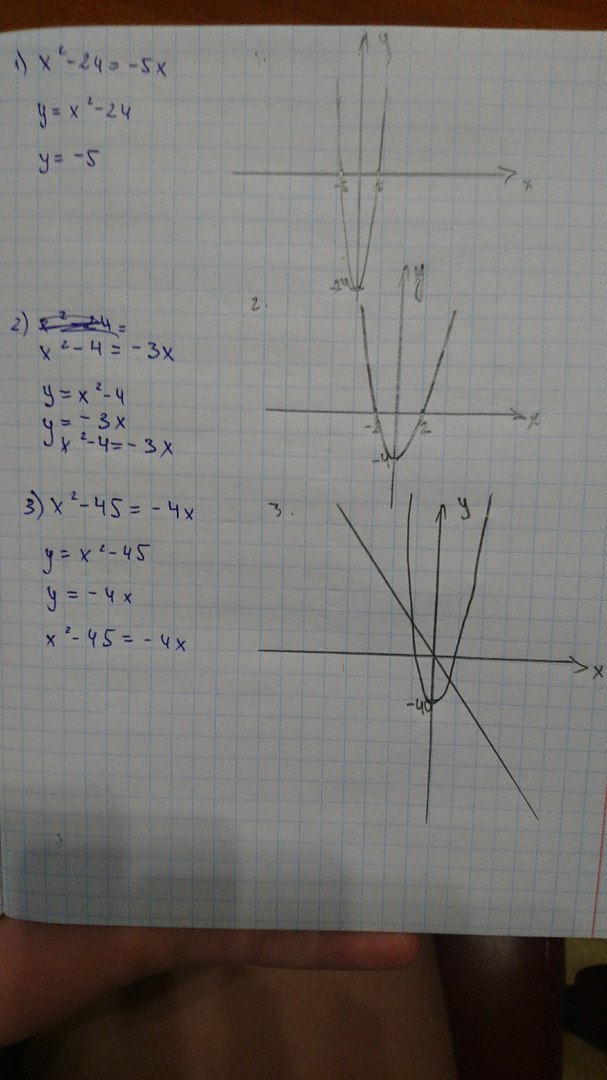 1) x² - 24 = -5x
y = x² - 24
y = -5
1.
y
x
-5 5
-24
2) x² - 24 =
x² - 4 = -3x
y = x² - 4
y = -3x
x² - 4 = -3x
2.
y
x
-2 2
-4
3) x² - 45 = -4x
y = x² - 45
y = -4x
x² - 45 = -4x
3.
y
x
-40